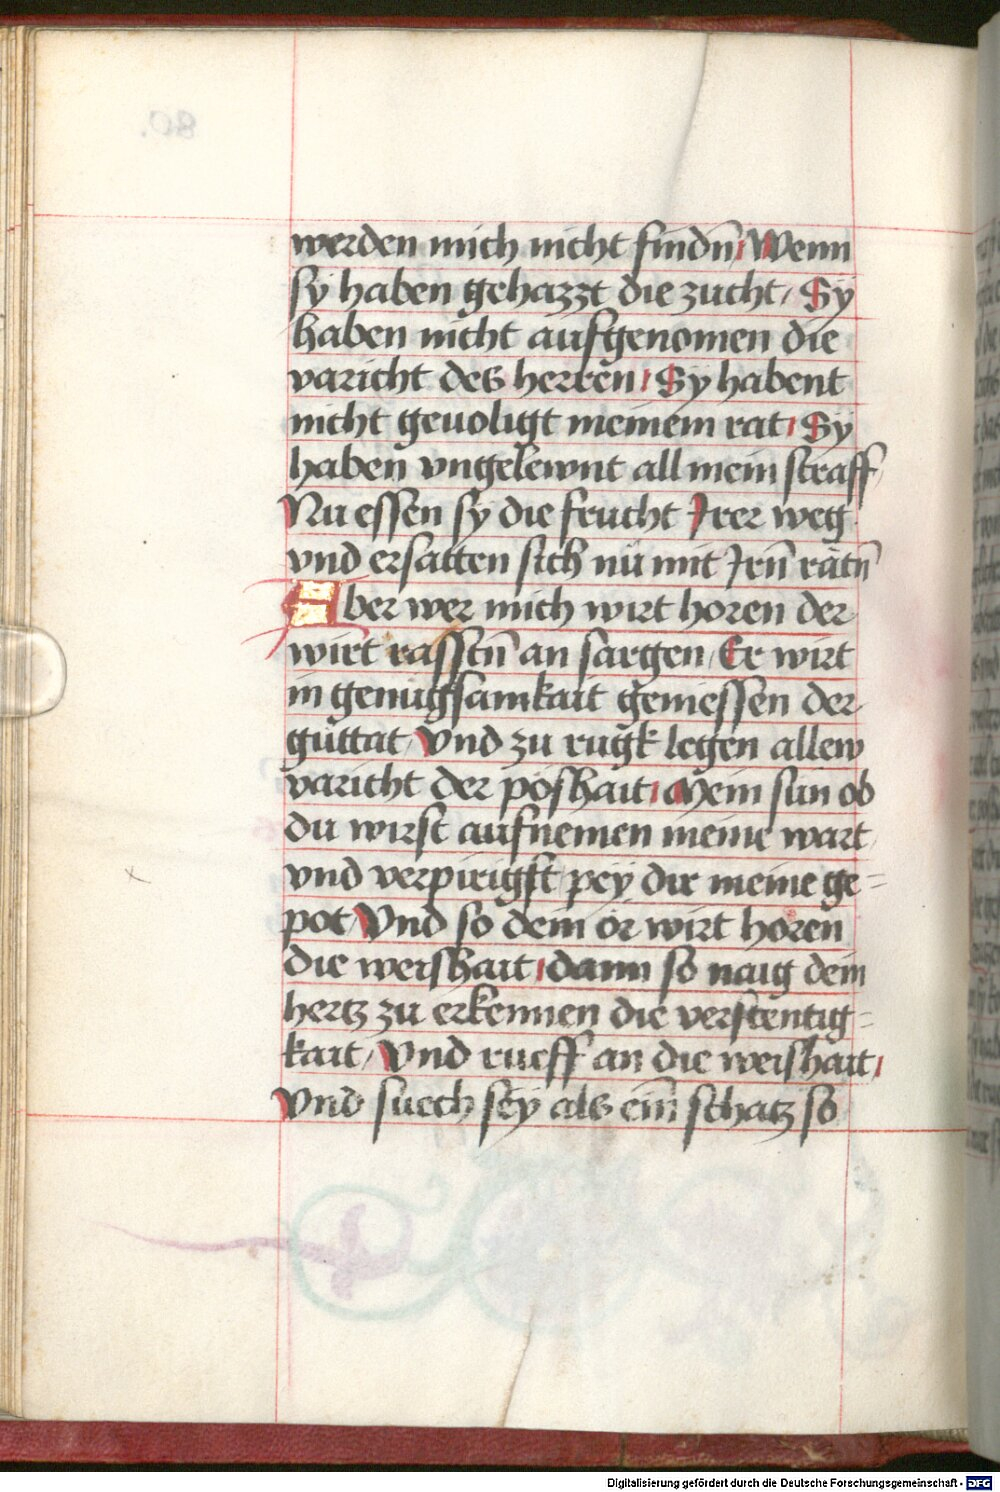 werden mich nicht findn̄ / Wenn
sy haben gehazzt die zucht / Sy
haben nicht aufgenomen die
varicht des herren / Sy habent
nicht geuoligt meinem rat / Sy
haben vngelewnt all mein straff /
Nu essen sy die frucht Irer weg
vnd ersatten sich nu mit Irn̄ rätn̄
Aber wer mich wirt horen der
wirt rasstn̄ an sargen / Er wirt
in genugsamkait geniessen der
güttat / Vnd zu rugk legen allew
varicht der poshait / Mein sun ob
du wirst aufnemen meine wart /
vnd verpirigst pey dir meine ge=
pot / Vnd so dein or wirt horen
die weishait / dann so naig dein
hertz zu erkennen die verstentig=
kait / Vnd rueff an die weishait /
Vnd suech sey als ein schatz so
80.
Digitalisierung gefördert durch die Deutsche Forschungsgemeinschaft - DFG